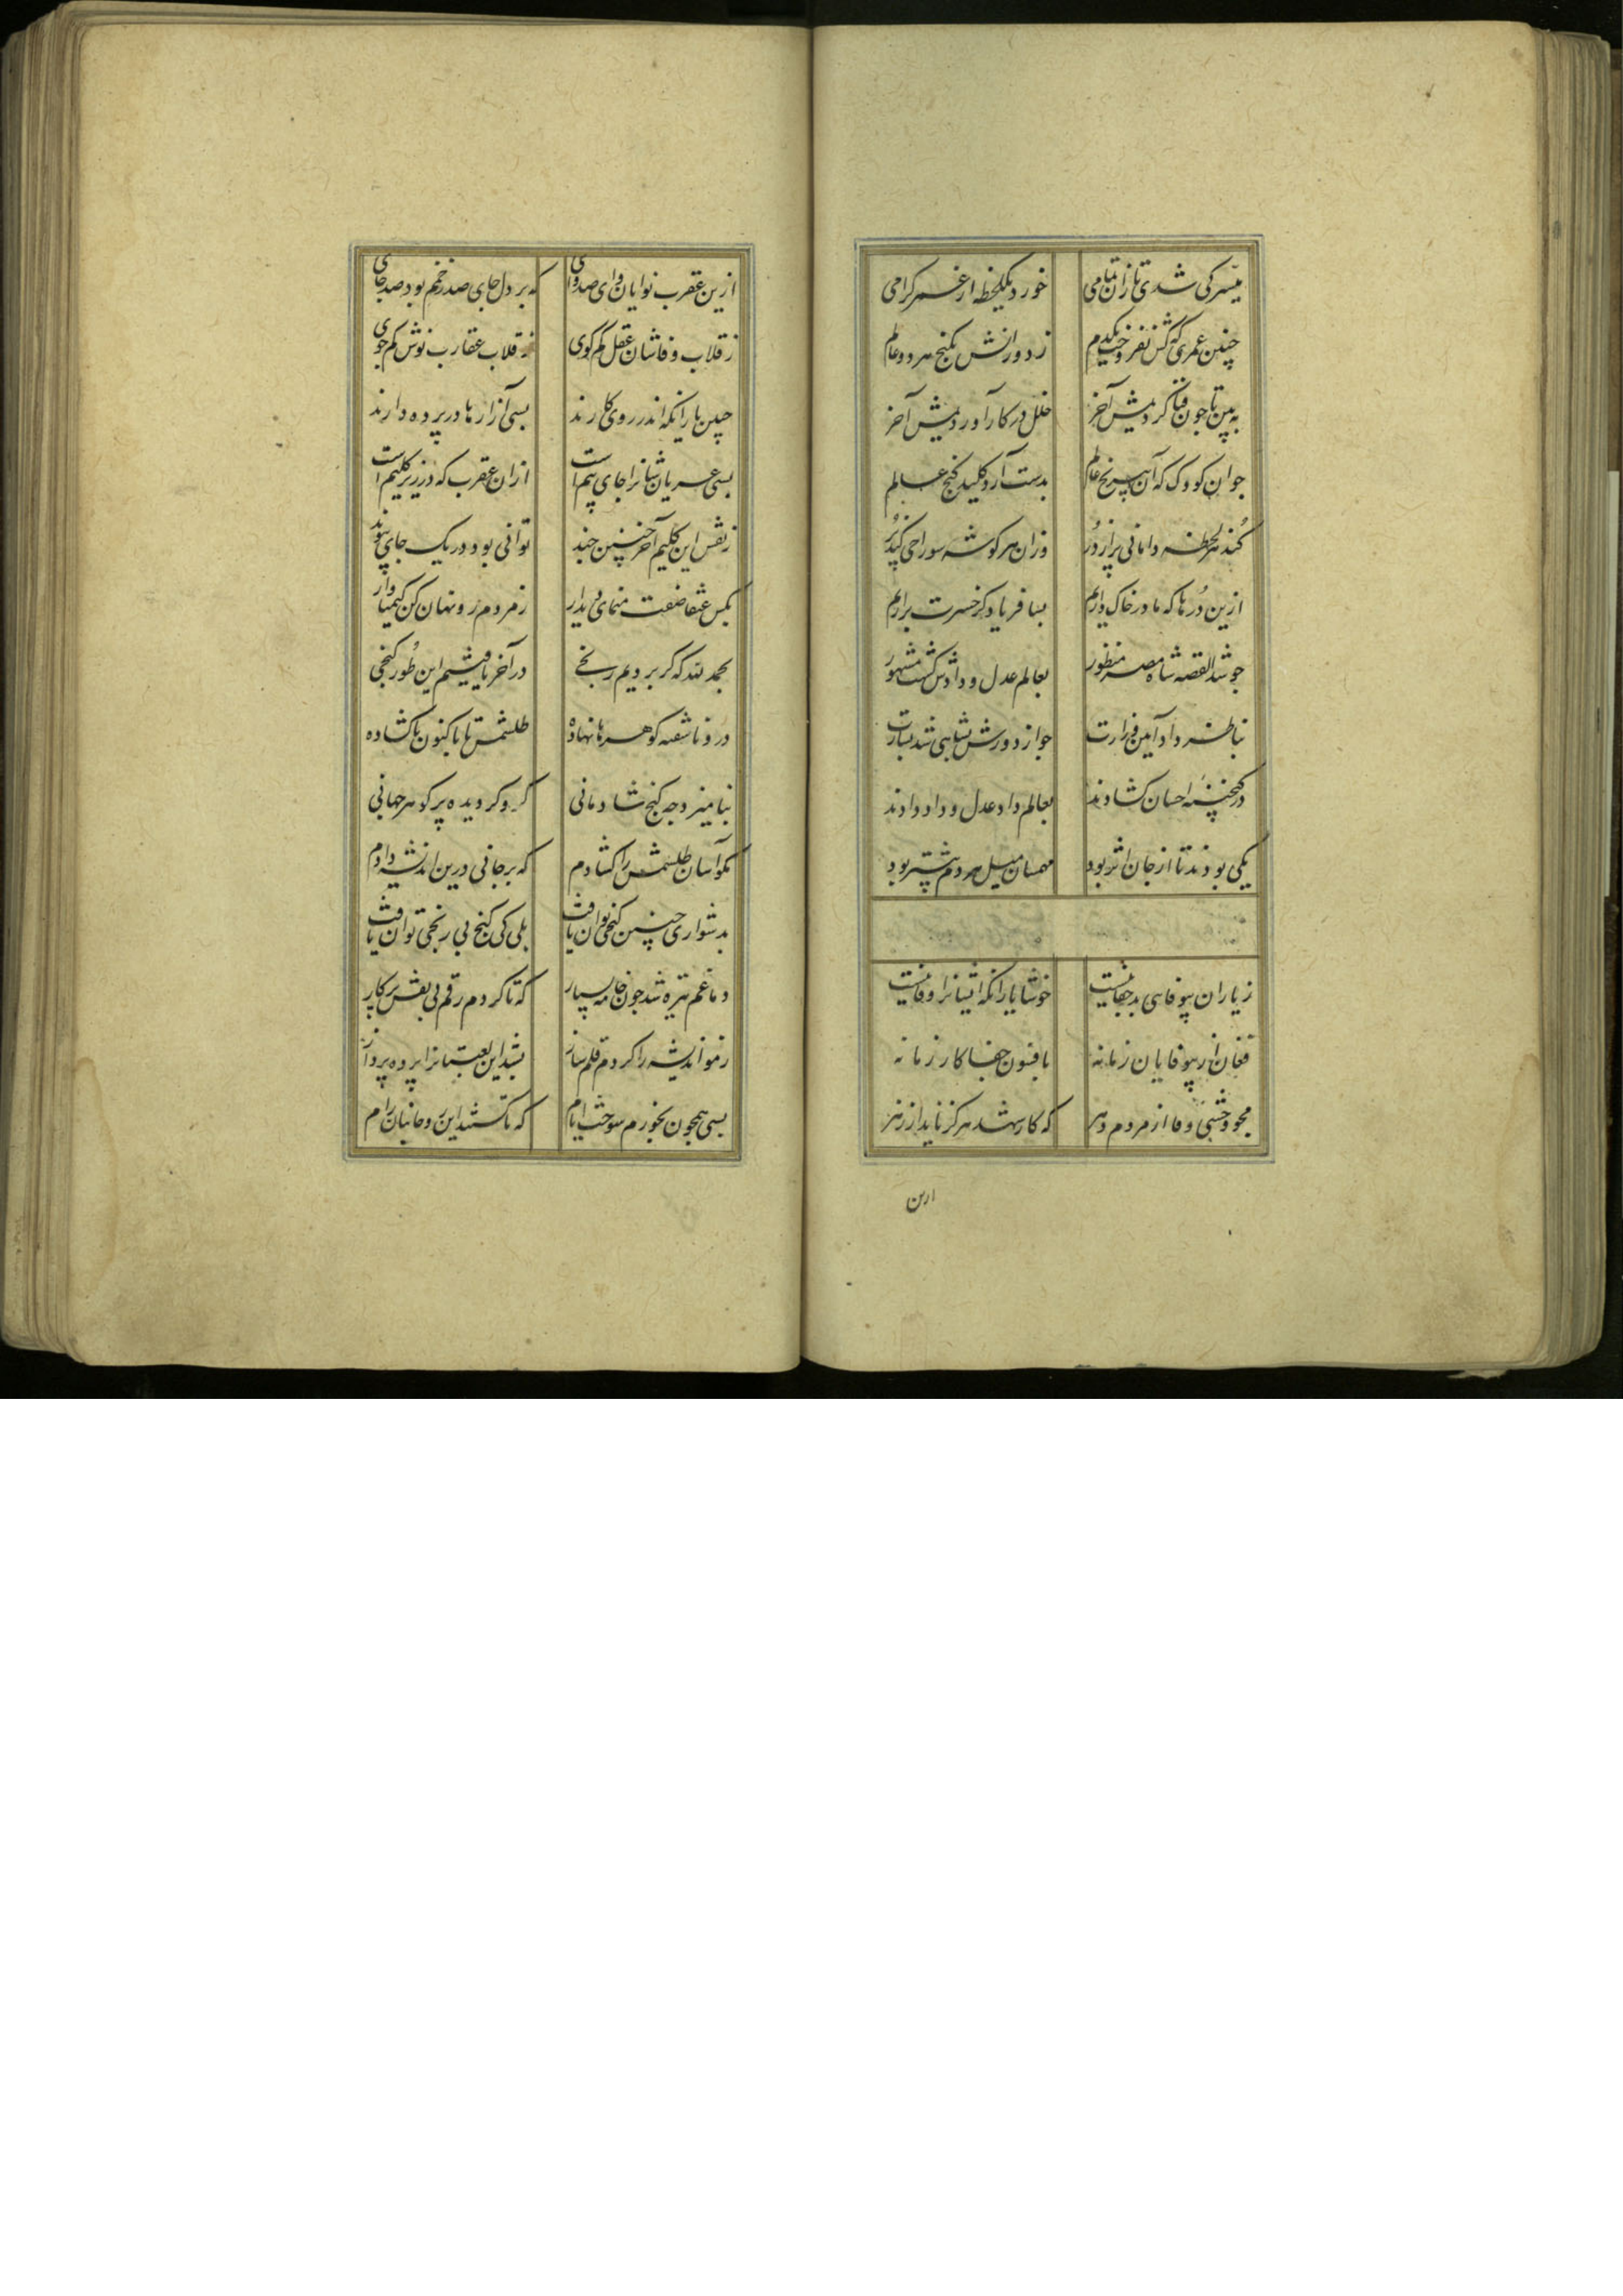 میسر کی شدی تا زان تمامی خورد یکلحظه از عمر گرامی
چنین عمری که کس نفروخت یکدم ز دورانش بگنج هر دو عالم
به بین تا چون فنا کردیمش آخر خلل در کار آوردیمش آخر
چو آن کودک که آن بیرنج عالم بدست آرد کلید گنج عالم
کند هر لحظه دامانی پر از در وزان هر گوشه سوراخی کند پر
ازین درها که ما در خاک داریم بسا فریاد کز حسرت برآریم
چو شد القصه شاه مصر منظور بعالم عدل و دادش گشت مشهور
بناظر داد آیین وزارت چو از دورش بشاهی شد بشارت
در گنجینه احسان گشادند بعالم داد عدل و داد دادند
یکی بودند تا از جان اثر بود همان میل هر دم بیشتر بود
ز یاران بیوفایی بد جفاییست خوشا یاران که ایشانرا وفاییست
فغان از بیوفایان زمانه بافسون جفا کار زمانه
مجو وحشی وفا از مردم دهر که کار شهد هرگز ناید از زهر
ازین
ازین عقرب نوایان وای صد وای که بر دل جای صد زخمم بود صد جای
ز قلاب وفاشان عقل کم گوی ز قلاب عقارب نوش کم جوی
چنین یارانکه اندر روی کارند بسی آزارها در پرده دارند
بسی عریان تنانرا جای بیم است ازان عقرب که در زیر گلیم است
ز نقش این گلیم آخر چنین چند توانی بود در یک جای پیوند
بکس عنقا صفت منمای دیدار ز مردم رو نهان کن کیمیا وار
بحمد لله که گر بردیم رنجی در آخر یافتیم این طور گنجی
درو ناسفته گوهرها نهاده طلسمش تا باکنون ناگشاده
بنامیزد چه گنج شادمانی گرو گردیده پر گوهر جهانی
مگو آسان طلسمش را گشادم که بر جانی درین اندیشه دادم
بدشواری چنین گنجی توان یافت بلی کی گنج بی رنجی توان یافت
دماغم تیره شد چون خامه بسیار که تا کردم رقم بی نقش پرگار
ز مو اندیشه را کردم قلم ساز بشد این لعبتانرا پرده پرداز
بسی همچون بخورم سوخت ایام که تا گشتند این روحانیان رام